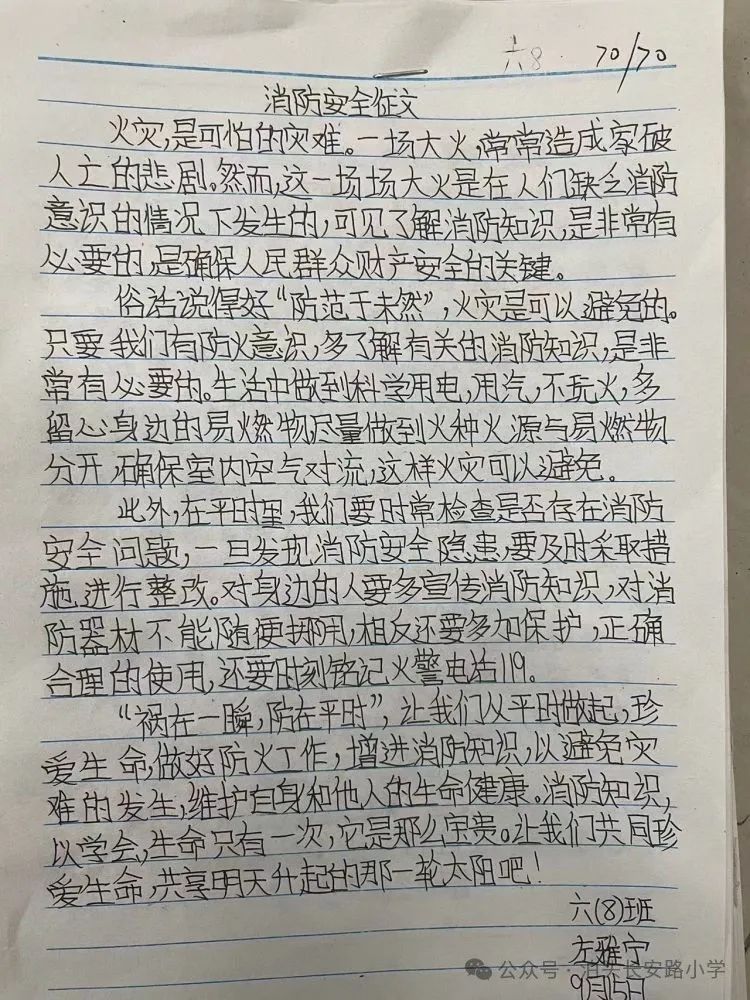 六8 70/70
消防安全征文
火灾,是可怕的灾难。一场大火,常常造成家破
人亡的悲剧。然而,这一场场大火是在人们缺乏消防
意识的情况下发生的,可见了解消防知识,是非常有
必要的,是确保人民群众财产安全的关键。
俗话说得好“防范于未然”,火灾是可以避免的。
只要我们有防火意识,多了解有关的消防知识,是非
常有必要的。生活中做到科学用电,用汽,不玩火,多
留心身边的易燃物,尽量做到火种火源与易燃物
分开,确保室内空气对流,这样火灾可以避免。
此外,在平时里,我们要时常检查是否存在消防
安全问题,一旦发现消防安全隐患,要及时采取措
施进行整改。对身边的人要多宣传消防知识,对消
防器材不能随便挪用,相反还要多加保护,正确
合理的使用,还要时刻铭记火警电话119。
“祸在一瞬,防在平时”,让我们从平时做起,珍
爱生命,做好防火工作,增进消防知识,以避免灾
难的发生,维护自身和他人的生命健康。消防知识,
以学会,生命只有一次,它是那么宝贵。让我们共同珍
爱生命,共享明天升起的那一轮太阳吧!
六(8)班
左雅宁
9月15日
公众号·泊头长安路小学